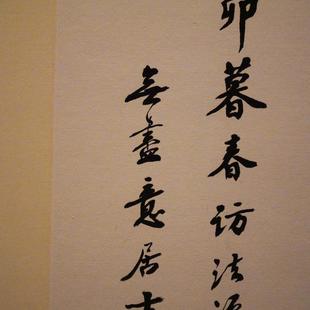 卯暮春访法源
无尽意居士